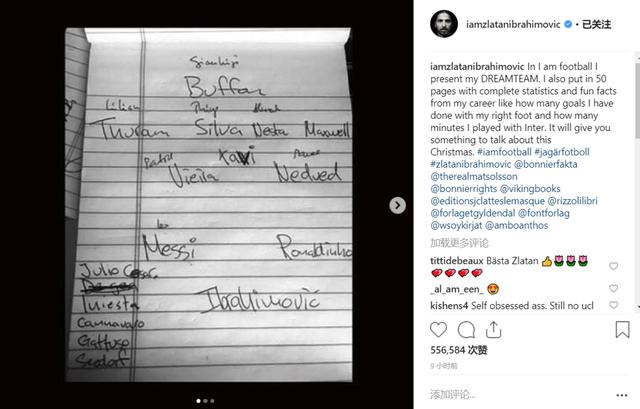 Gianluigi
Buffon
Lilian
Thiago
Thuram Silva Nesta Maxwell
Patrick Xavi Pavel
Vieira Nedved
Leo
Messi Ronaldinho
Julio Cesar
Iniesta Ibrahimović
Cannavaro
Gattuso
Seedorf
iamzlatanibrahimovic • 已关注
iamzlatanibrahimovic In I am football I
present my DREAMTEAM. I also put in 50
pages with complete statistics and fun facts
from my career like how many goals I have
done with my right foot and how many
minutes I played with Inter. It will give you
something to talk about this
Christmas. #iamfootball #jagärfotboll
#zlatanibrahimovic @bonnierfakta
@therealmatsolsson
@bonnierrights @vikingbooks
@editionsjclatteslemasque @rizzolilibri
@forlagetgyldendal @fontforlag
@wsoykirjat @amboanthos
加载更多评论
tittidebeaux Bästa Zlatan 👍🌷🌷🌷
💘💘💘💘
_al_am_een_ 😍
kishens4 Self obsessed ass. Still no ucl
556,584 次赞
9 小时前
添加评论...